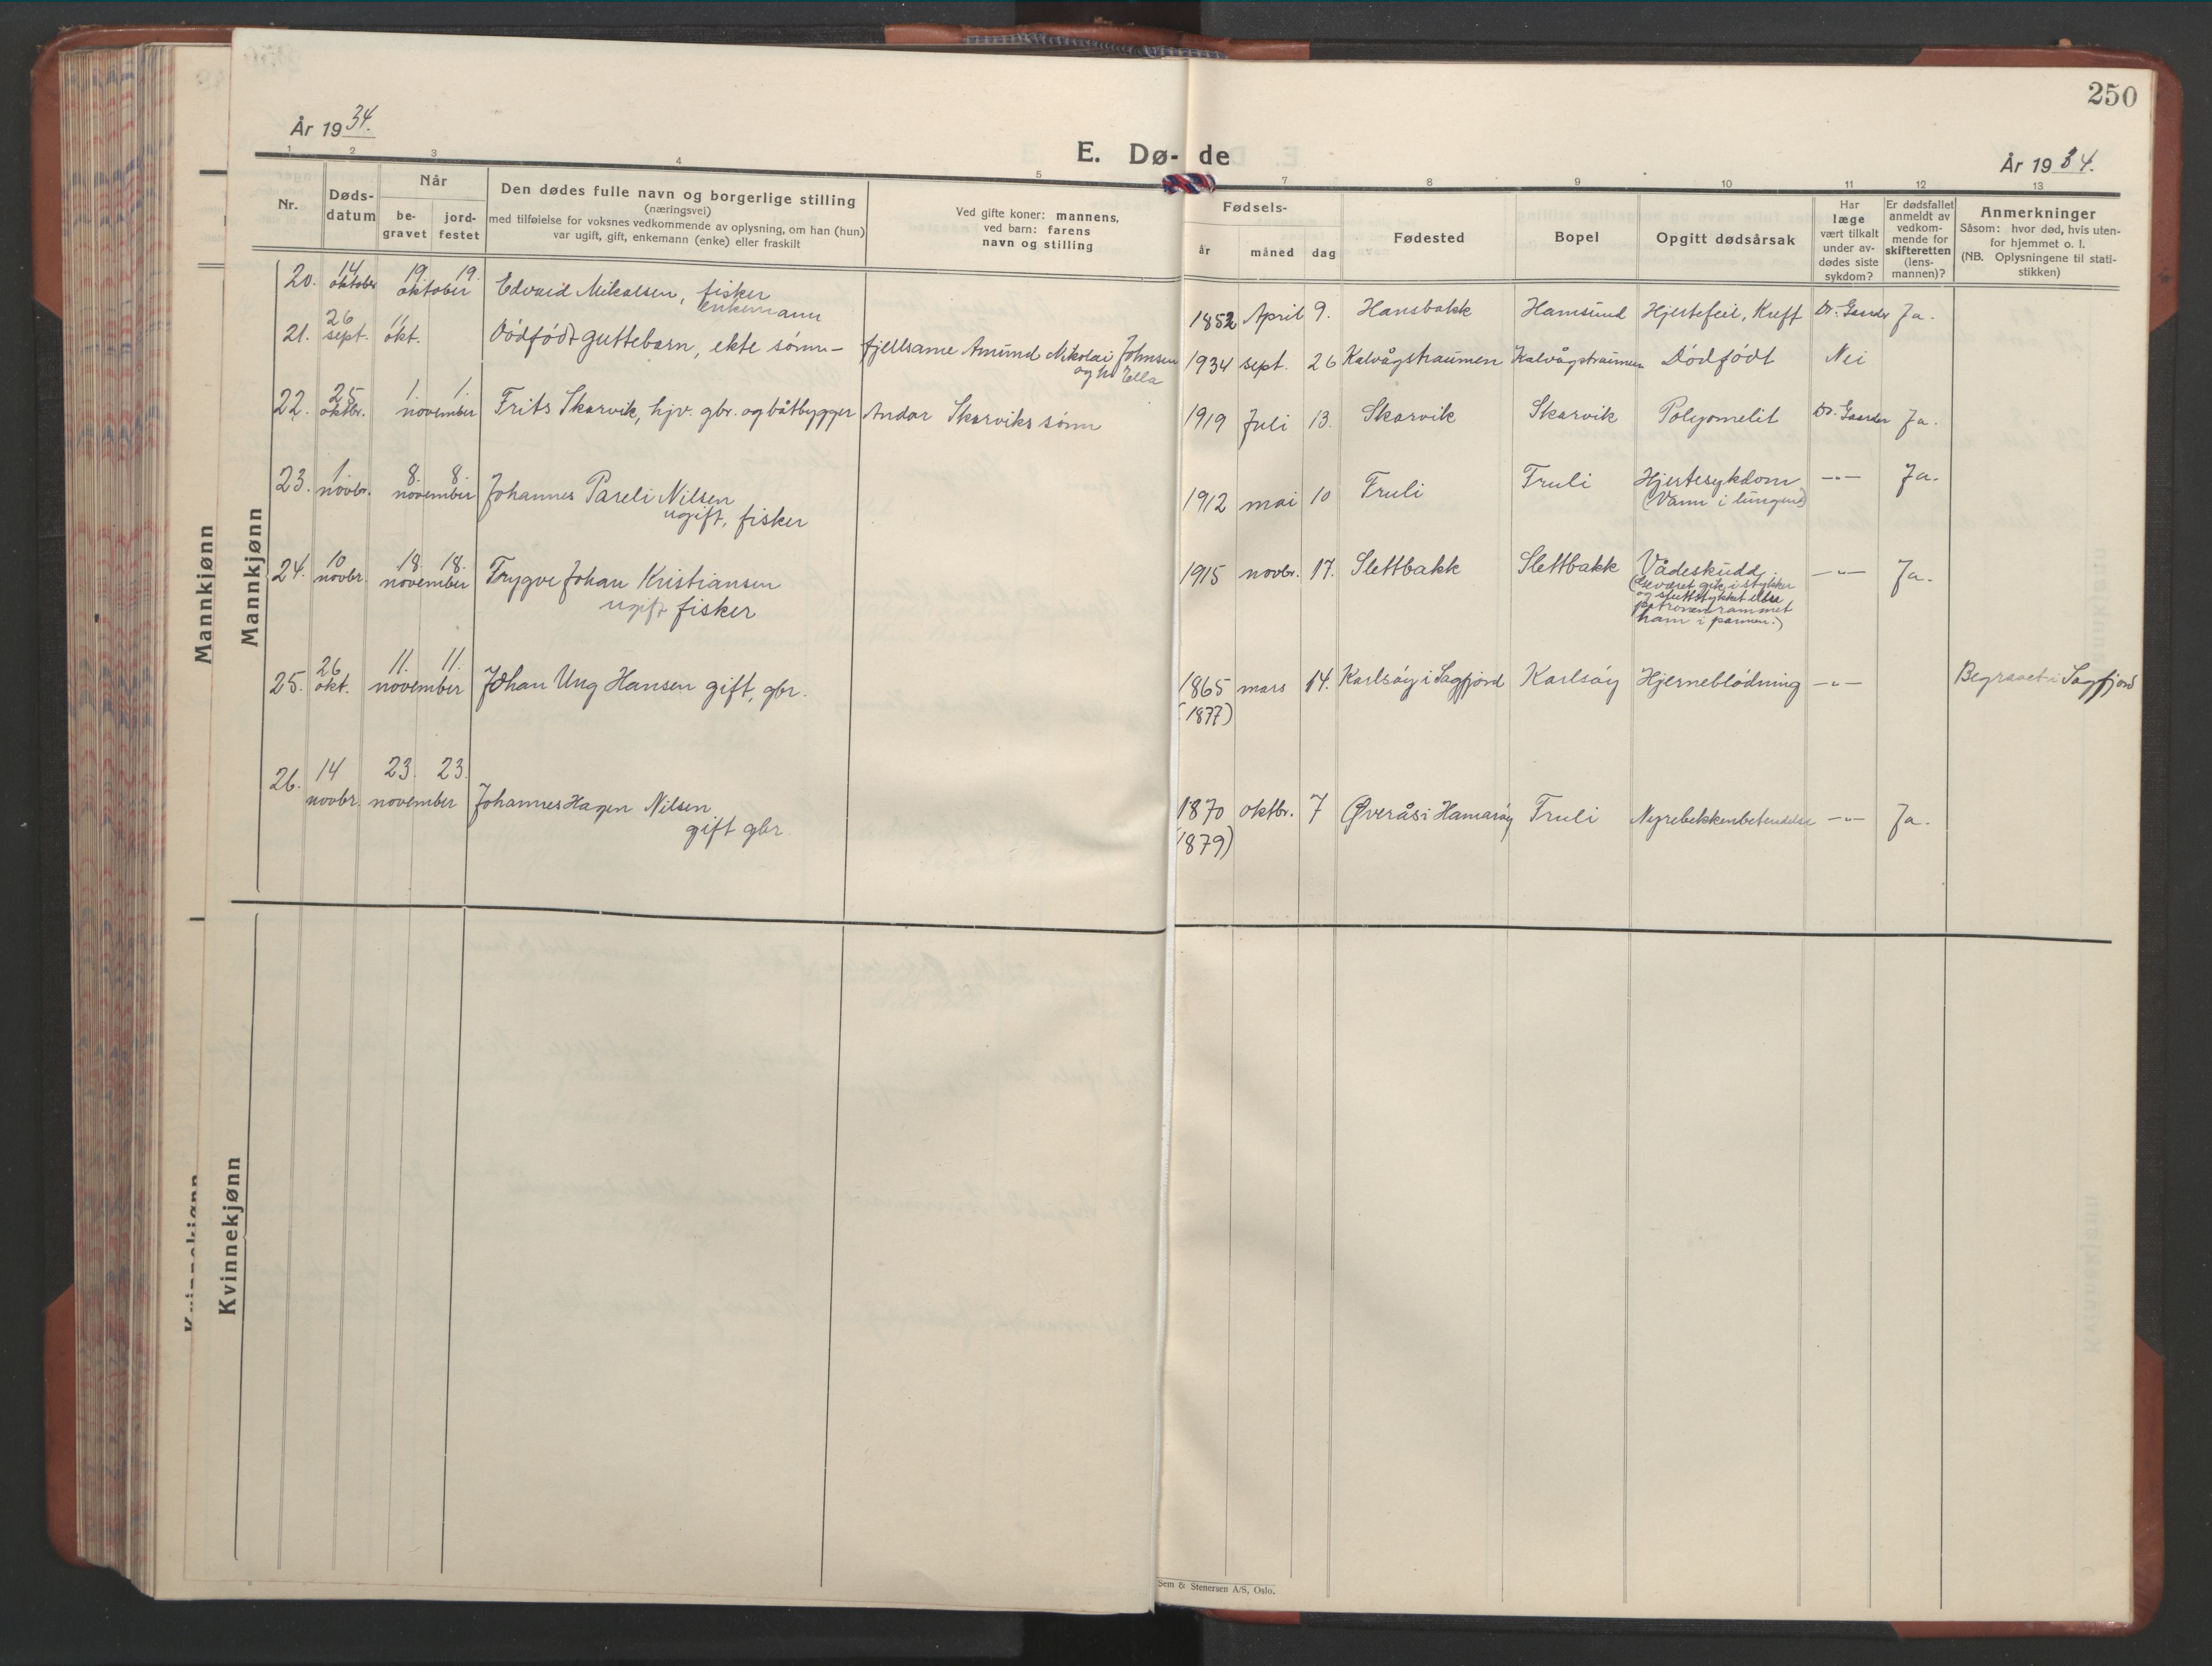 250
År 1934.
E. Dø- de
År 1934.
1 2 3 4 5 7 8 9 10 11 12 13
Nr.
Døds-
datum
Når
be-
gravet
jord-
festet
Den dødes fulle navn og borgerlige stilling
(næringsvei)
med tilføielse for voksnes vedkommende av oplysning, om han (hun)
var ugift, gift, enkemann (enke) eller fraskilt
Ved gifte koner: mannens,
ved barn: farens
navn og stilling
Fødsels-
år måned dag
Fødested
Bopel
Opgitt dødsårsak
Har
læge
vært tilkalt
under av-
dødes siste
sykdom?
Er dødsfallet
anmeldt av
vedkom-
mende for
skifteretten
(lens-
mannen)?
Anmerkninger
Såsom: hvor død, hvis uten-
for hjemmet o. l.
(NB. Oplysningene til stati-
stikken)
Mannkjønn
Mannkjønn
20. 14 oktober 19. 19. oktober Edvard Mikalsen, fisker
enkemann
1852 April 9. Hansbakk Hamsund Hjertefeil, Kreft Dr. Gaarder Ja.
21. 26 sept. 11 okt. Dødfødt guttebarn, ekte sønn – fjellsame Amund Nikolai Johnsen
og h. Ella
1934 sept. 26 Kalvågstraumen Kalvågstraumen Dødfødt Nei
22. 25 oktbr. 1. 1. november Frits Skarvik, hjv. gbr. og båtbygger Andor Skarviks sønn
1919 Juli 13. Skarvik Skarvik Polyomelit Dr. Gaarder Ja.
23. 1. novbr. 8. 8. november Johannes Pareli Nilsen
ugift, fisker
1912 mai 10 Truli Truli Hjertesykdom —"— Ja.
(Vann i lungene)
24. 10 novbr. 18. 18. november Trygve Johan Kristiansen
ugift fisker
1915 novbr. 17. Slettbakk Slettbakk Vådeskudd. —"— Ja.
(Geværet gikk i stykker
og sluttstykket eller
patronen rammet
ham i pannen.)
25. 26 okt. 11. 11. november Johan Ung Hansen gift, gbr.
1865 mars 14. Karlsøy i Sagfjord Karlsøy Hjerneblødning —"— Begravet i Sagfjord
(1877)
26. 14 novbr. 23. 23. november Johannes Hagen Nilsen
gift gbr.
1870 oktbr. 7 Øverås i Hamarøy Truli Nyrebekkenbetendelse —"— Ja.
(1879)
Kvinnekjønn
Kvinnekjønn
Sem & Stenersen A/S, Oslo.